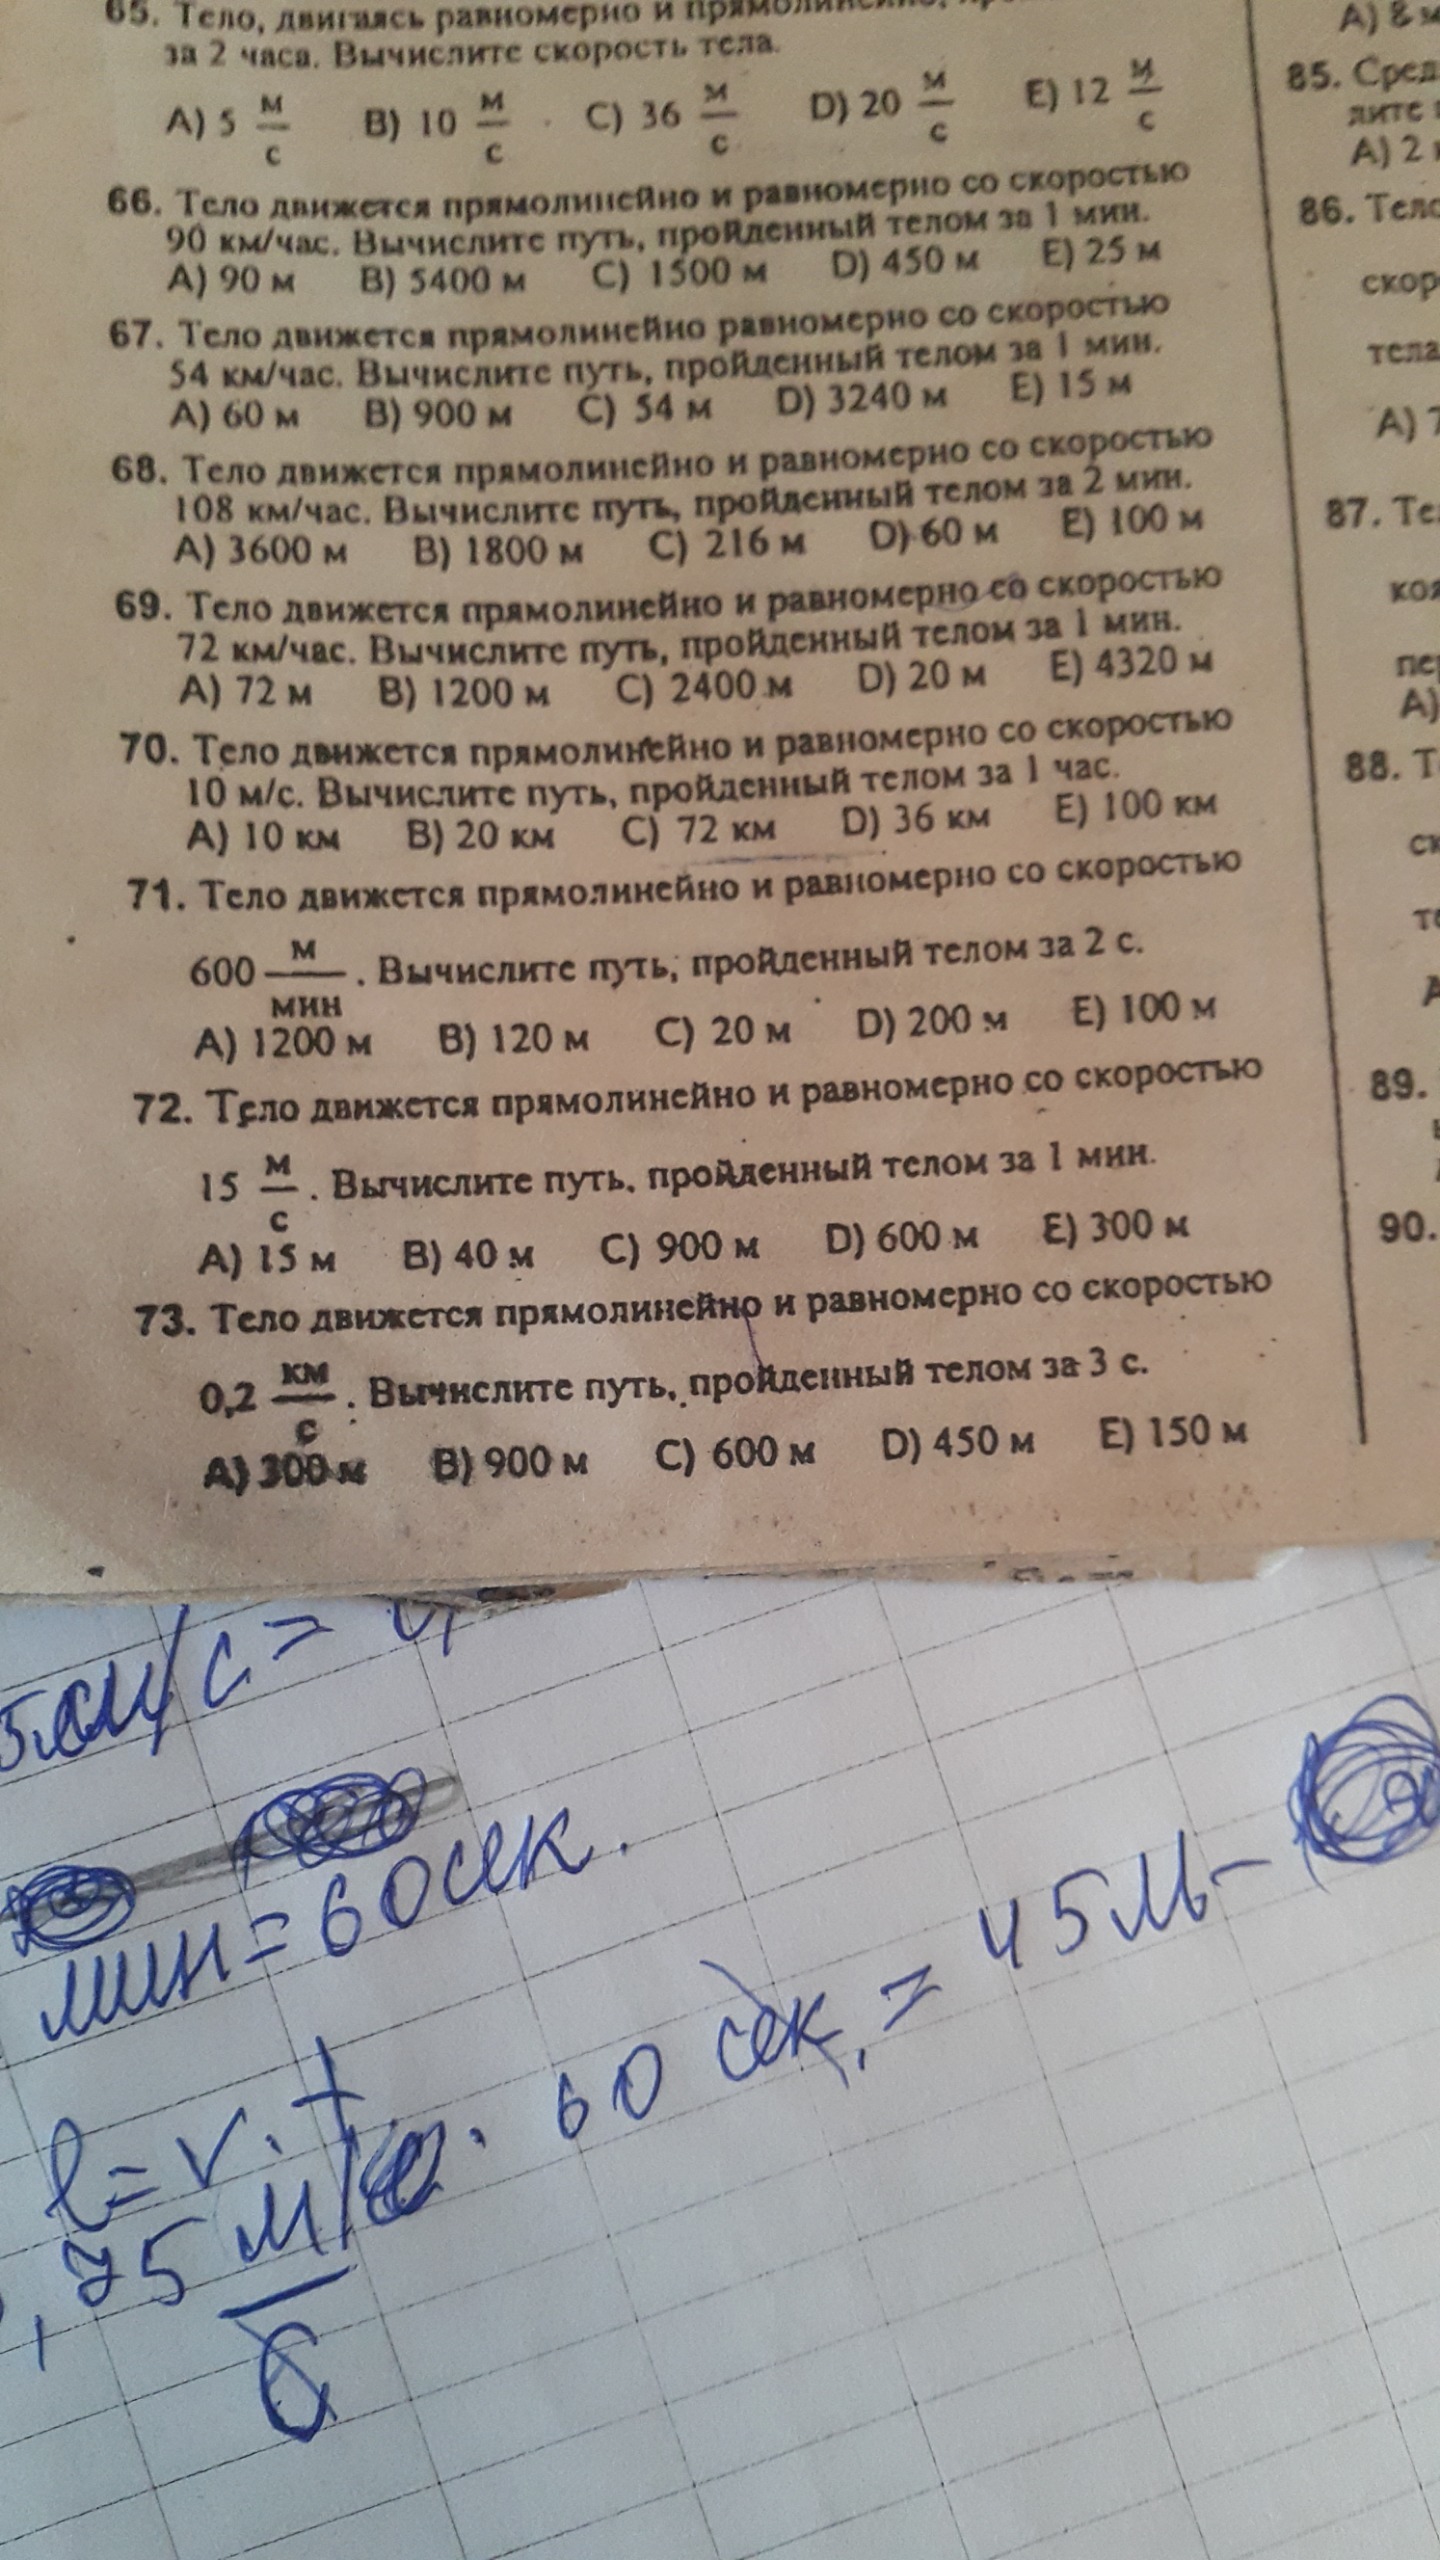 65. Тело, двигаясь равномерно и прямолинейно,
за 2 часа. Вычислите скорость тела.
A) 5 м/с B) 10 м/с C) 36 м/с D) 20 м/с E) 12 м/с
66. Тело движется прямолинейно и равномерно со скоростью
90 км/час. Вычислите путь, пройденный телом за 1 мин.
A) 90 м B) 5400 м C) 1500 м D) 450 м E) 25 м
67. Тело движется прямолинейно равномерно со скоростью
54 км/час. Вычислите путь, пройденный телом за 1 мин.
A) 60 м B) 900 м C) 54 м D) 3240 м E) 15 м
68. Тело движется прямолинейно и равномерно со скоростью
108 км/час. Вычислите путь, пройденный телом за 2 мин.
A) 3600 м B) 1800 м C) 216 м D) 60 м E) 100 м
69. Тело движется прямолинейно и равномерно со скоростью
72 км/час. Вычислите путь, пройденный телом за 1 мин.
A) 72 м B) 1200 м C) 2400 м D) 20 м E) 4320 м
70. Тело движется прямолинейно и равномерно со скоростью
10 м/с. Вычислите путь, пройденный телом за 1 час.
A) 10 км B) 20 км C) 72 км D) 36 км E) 100 км
71. Тело движется прямолинейно и равномерно со скоростью
600 м/мин. Вычислите путь, пройденный телом за 2 с.
A) 1200 м B) 120 м C) 20 м D) 200 м E) 100 м
72. Тело движется прямолинейно и равномерно со скоростью
15 м/с. Вычислите путь, пройденный телом за 1 мин.
A) 15 м B) 40 м C) 900 м D) 600 м E) 300 м
73. Тело движется прямолинейно и равномерно со скоростью
0,2 км/с. Вычислите путь, пройденный телом за 3 с.
A) 300 м B) 900 м C) 600 м D) 450 м E) 150 м
A) 8
85.
A) 2
86. Тело
тела
A) 7
87.
88.
89.
90.
мин = 60 сек.
l = v · t
,75 м/с · 60 сек. = 45 м